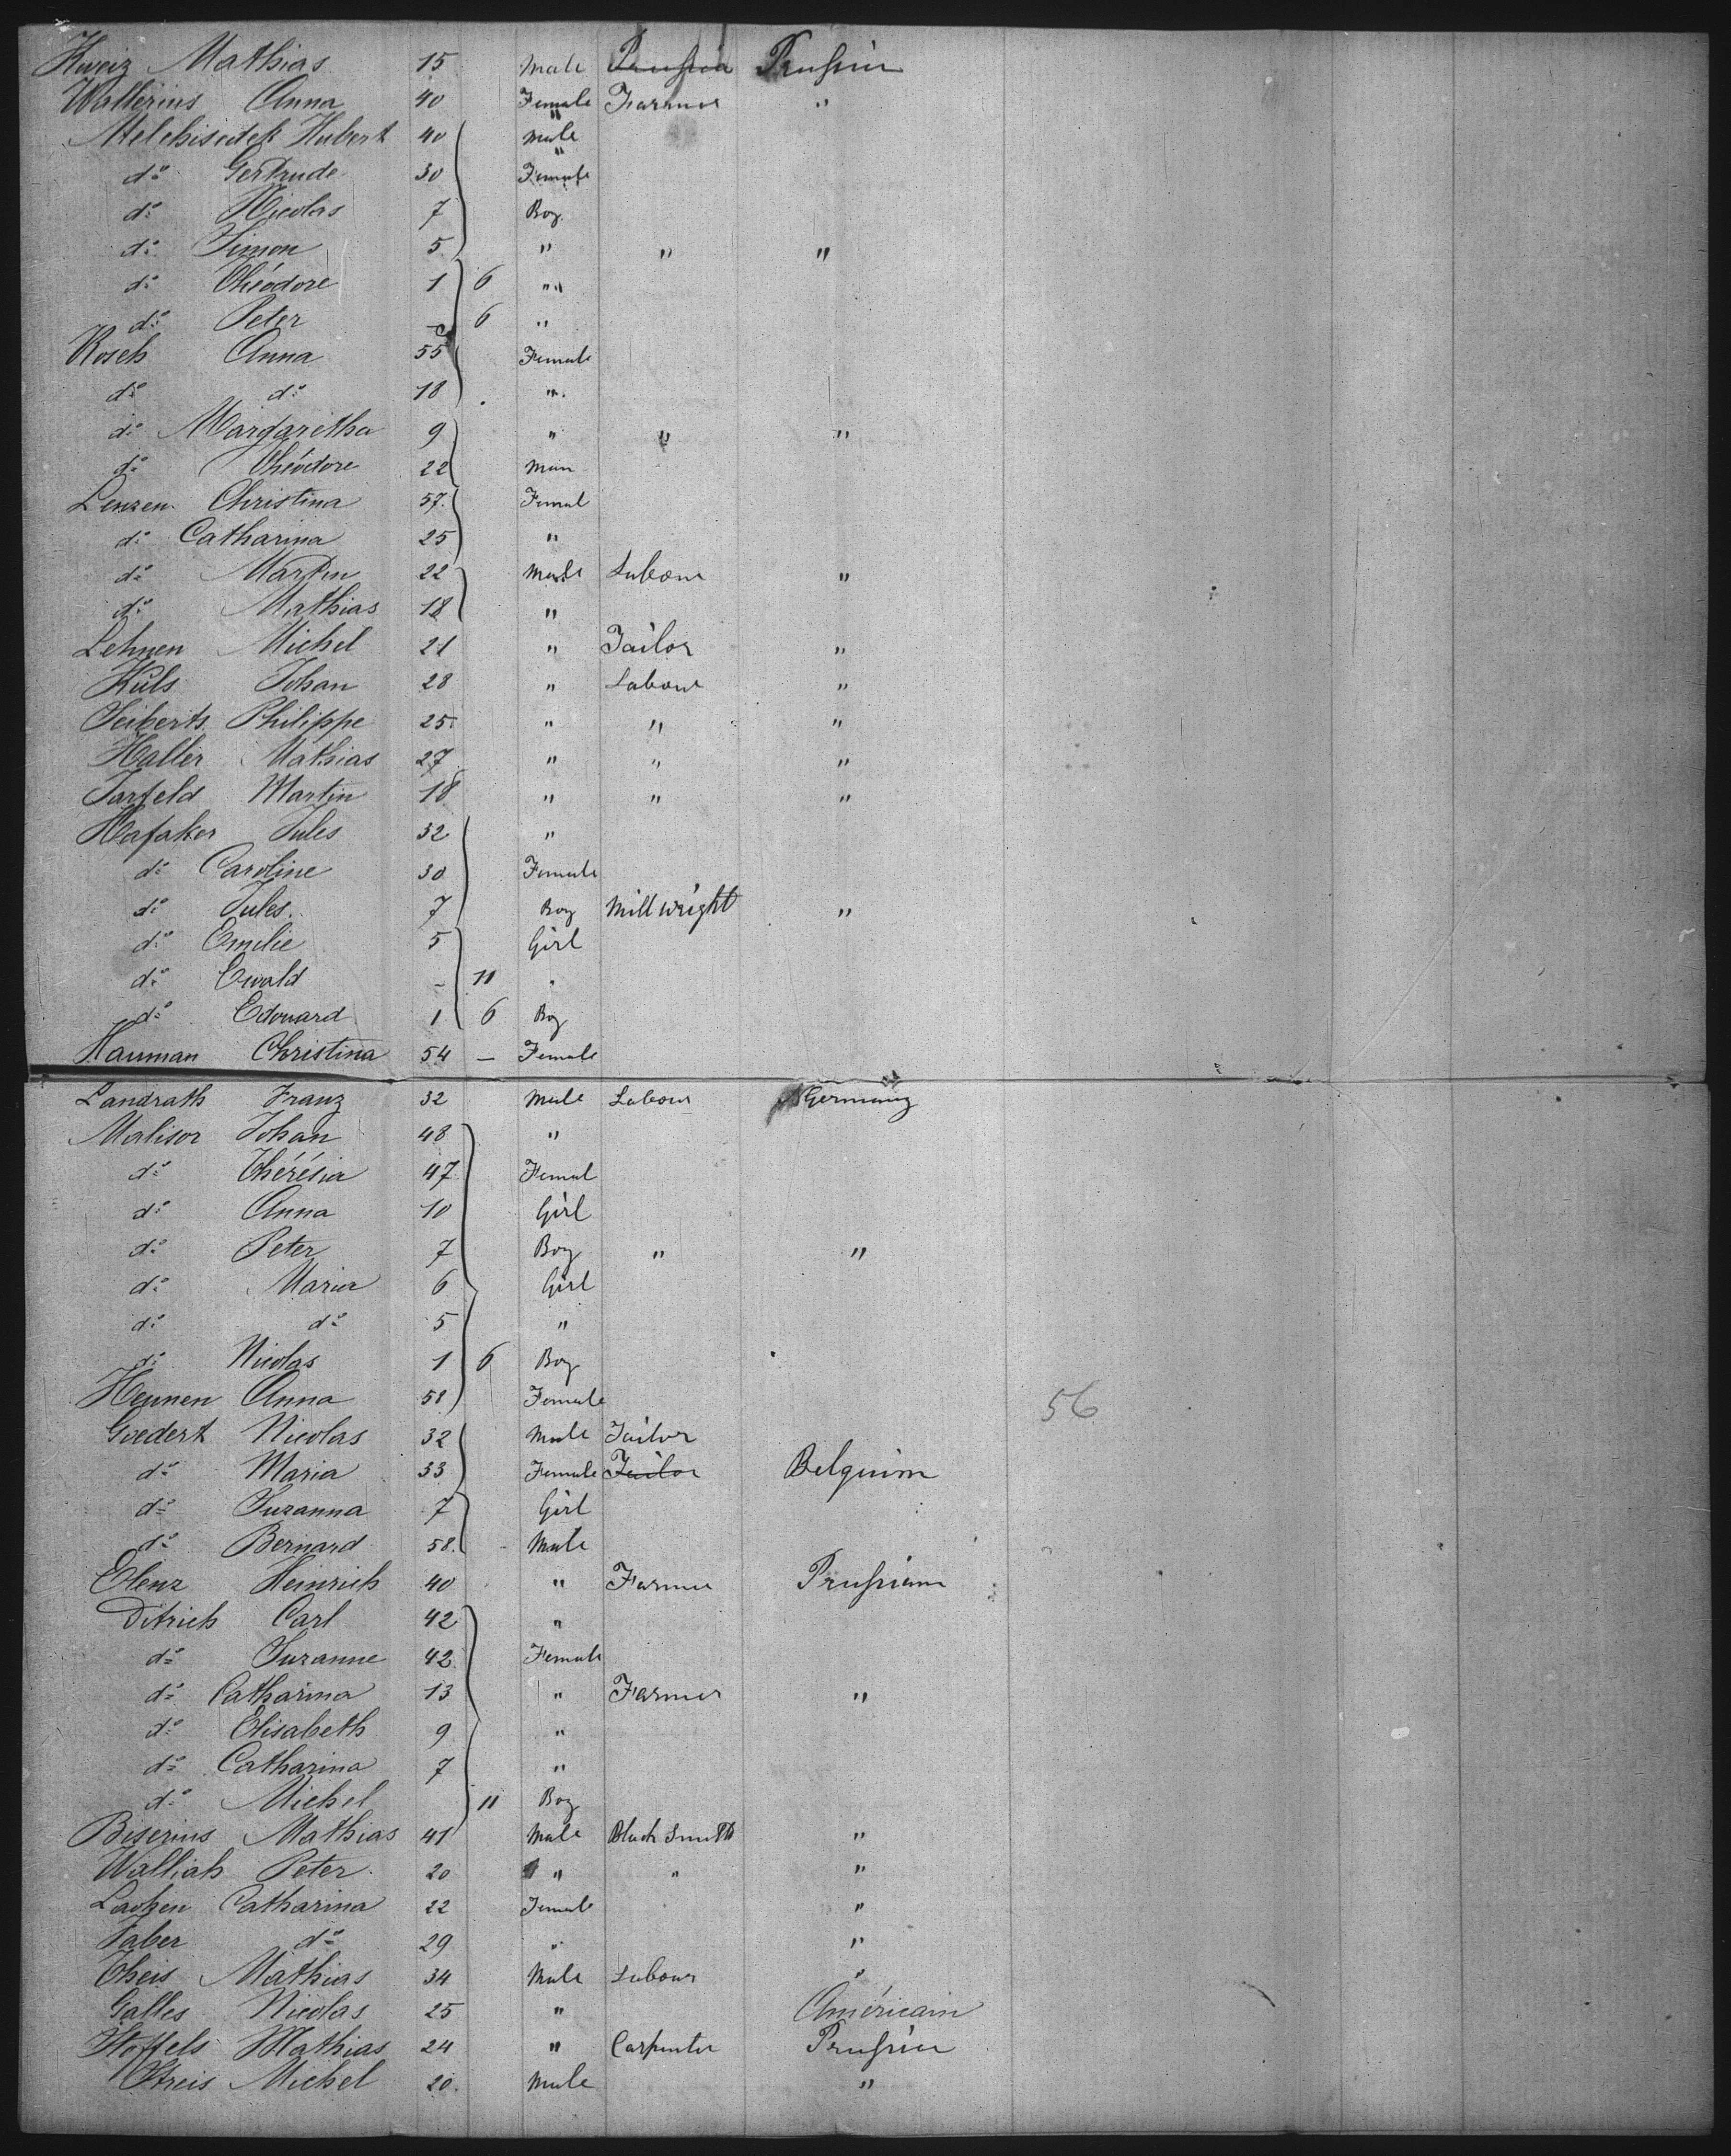 Kweiz Mathias 15 Male Prussia Prussia
Wallerius Anna 40 Female Farmer "
Melchisedek Hubert 40 Male
do Gertrude 30 Female
do Nicolas 7 Boy
do Simon 5 " " "
do Théodore 1 6 "
do Peter - 6 "
Kosch Anna 55 Female
do do 18 "
do Margaretha 9 " " "
do Théodore 22 Man
Lenzen Christina 57 Femal
do Catharina 25 "
do Martin 22 Male Labour "
do Mathias 18 "
Lehnen Michel 21 " Tailor "
Küls Johan 28 " Labour "
Seiberts Philippe 25 " " "
Haller Mathias 27 " " "
Jarfeld Martin 18 " " "
Hafaker Jules 32 "
do Caroline 30 Female
do Jules 7 Boy Mill wright "
do Emilie 5 Girl
do Ewald - 11 "
do Edouard 1 6 Boy
Hauman Christina 54 — Female
Landrath Franz 32 Male Labour Germany
Malisor Johan 48 "
do Thérésia 47 Femal
do Anna 10 Girl
do Peter 7 Boy " "
do Maria 6 Girl
do do 5 "
do Nicolas 1 6 Boy
Hennen Anna 58 Female
56
Goedert Nicolas 32 Male Tailor
do Maria 33 Female Tailor Belguim
do Suzanna 7 Girl
do Bernard 58 Male
Olenz Heinrich 40 " Farmer Prussiam
Ditrich Carl 42 "
do Suzanne 42 Female
do Catharina 13 " Farmer "
do Elisabeth 9 "
do Catharina 7 "
do Michel 11 Boy
Biserius Mathias 41 Male Black Smith "
Walliah Peter 20 " " "
Catharina 22 Female "
Faber do 29 " "
Theis Mathias 34 Male Labour "
Galles Nicolas 25 " Américain
Stoffels Mathias 24 " Carpenter Prussia
Streis Michel 20 Male "